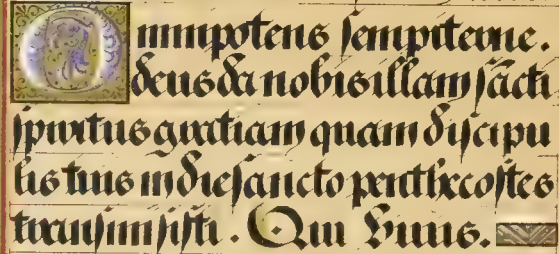 Omnipotens sempiterne.
deus da nobis illam sācti
spiritus gratiam quam discipu
lis tuis in die sancto penthecostes
transmisisti. Qui viuis.